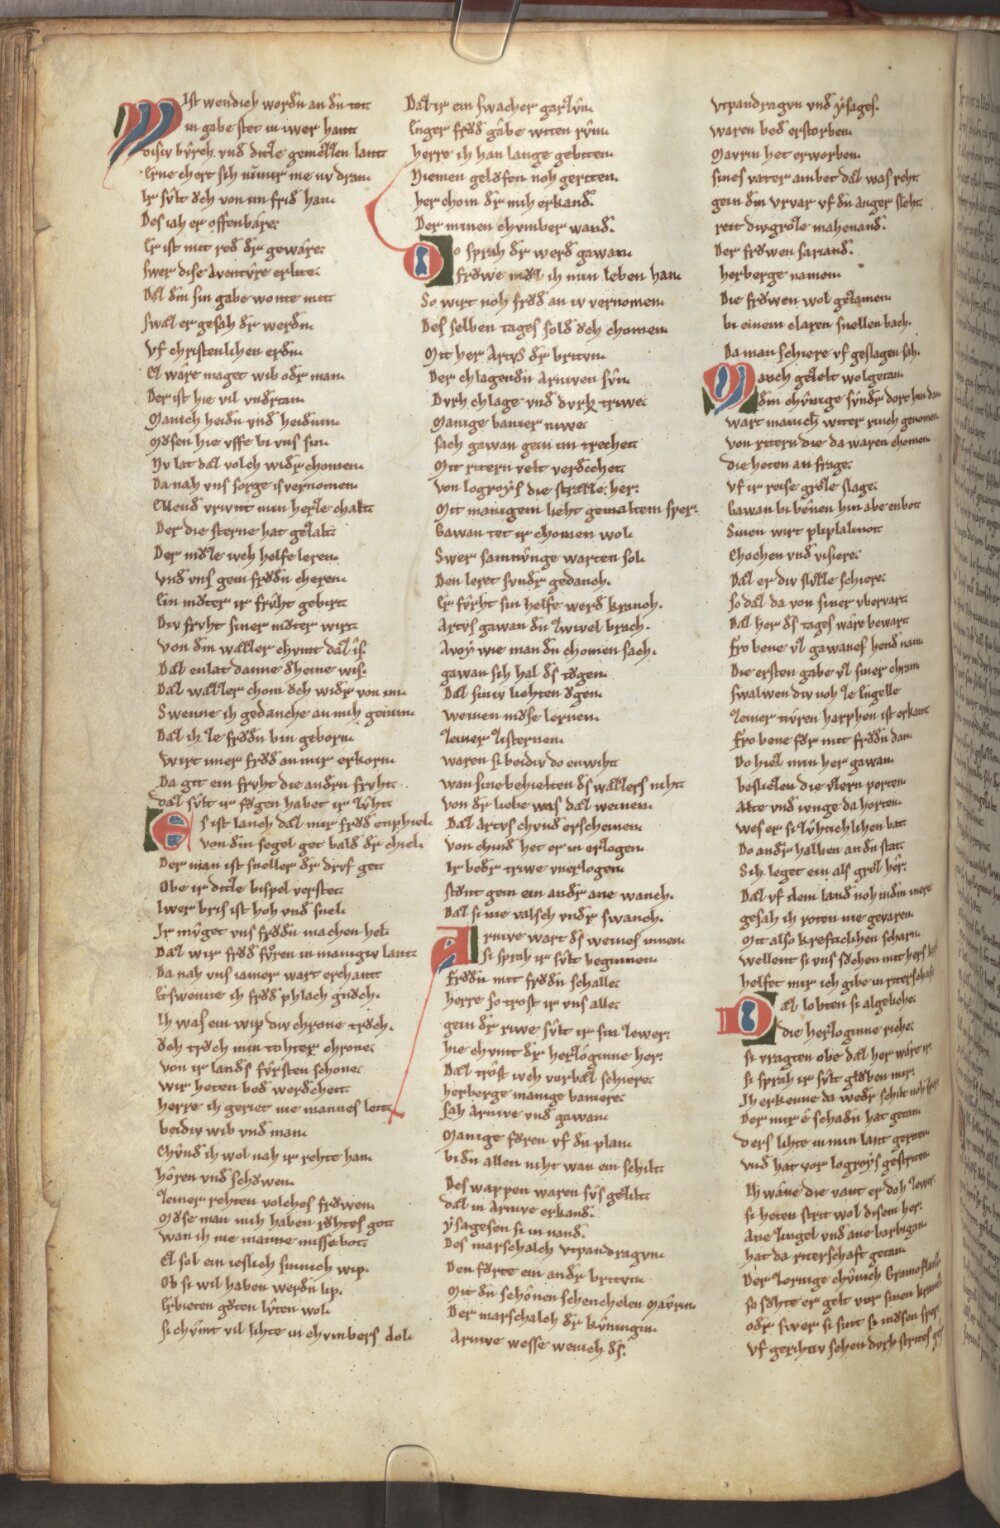 Ist wendich wordn an dn tot
in gabe stet in iwer hant
disiv bvrch vnd ditze gemezzen lant
Erne chert sich nimmer me nv dran
Ir svlt och von im frid han
Des iah er offenbære
Er ist mit red der gewære
swer dise Aventvre erlite
Daz dem sin gabe wonte mite
Swaz er gesah der werdn
Vf christenlichen erdn
Ez wære maget wib oder man
Der ist hie vil vndertan
Manich heidn vnd heidnin
Mvsen hie vffe bi vns sin
Nv lat daz volch wider chomen
Da nah vns sorge is vernomen
Ellend vrivnt min herze chalt
Der die sterne hat gezalt
Der mvze iwch helfe leren
vnd vns gein frodn cheren
Ein mvter ir frvht gebirt
Div frvht siner mvter wirt
von dem wazzer chvmt daz is
Daz enlat danne dheine wis
Daz wazzer chom och wider von im
Swenne ich gedanche an mich genim
Daz ich ze frodn bin geborn
wirt imer frod an mir erkorn
Da git ein frvht die andrn frvht
daz svlt ir fvgen habet ir zvht
Es ist lanch daz mir frod enphiel
von dem segel get bald der chiel
Der man ist sneller der drvf get
Obe ir ditze bispel verstet
Iwer bris ist hoh vnd snel
Ir mvget vns frodn machen hel
Daz wir frod fvren in manigiv lant
Da nah vns iamer wart erchant
Etswenne ich frod phlach gnvch
Ich was ein wip div chrone trvch
och trvch min tohter chrone
von ir lands fvrsten schone
wir heten bed werdcheit
herre ich geriet nie mannes leit
beidiv wib vnd man
Chvnd ich wol nah ir rehte han
horen vnd schowen
zeiner rehten volches frowen
Mvse man mich haben rvhtes got
wan ich nie manne missebot
Ez sol ein ieslich sinnich wip
Ob si wil haben werdn lip
Erbieten gvten lvten wol
si chvmt vil lihte in chvmbers dol
Daz ir ein swacher garzvn
Enger frod gabe witen rvm
herre ich han lange gebiten
Niemen gelovfen noh geriten
her chom der mih erkand
Der minen chvmber wand
Do sprah der werd gawan
frowe mvz ich min leben han
So wirt noh frod an iv vernomen
Des selben tages sold och chomen
Mit her Artvs der britvn
Der chlagendn Arniven svn
Dvrh chlage vnd dvrh triwe
Manige banier niwe
sach gawan gein im trecken
Mit ritern velt verdechet
von logroys die strazze her
Mit manigem lieht gemaltem sper
Gawan tet ir chomen wol
Swer samnvnge warten sol
Den leret svndr gedanch
Er fvrht sin helfe werd kranch
Artvs gawan dn zwivel brach
Avoy wie man dn chomen sach
gawan sich hal ds tovgen
Daz siniv liehten ovgen
weinen mvse lernen
zeiner zisternen
waren si beidiv do enwiht
wan sine behielten ds wazzers niht
von der liebe was daz weinen
Daz Artvs chvnd erscheinen
von chind het er in erzogen
Ir beder triwe vnerlogen
stvnt gein ein ander ane wanch
Daz si nie valsch vnder swanch
Arnive wart ds weines innen
si sprah ir svlt beginnen
frodn mit frodn schalle
herre so trost ir vns alle
gein der riwe svlt ir sin zewer
hie chvmt der herzoginne her
Daz trost iwch vorbaz schiere
herberge manige baniere
sah Arnive vnd gawan
Manige fvren vf dn plan
bi dn allen niht wan ein schilt
Des wappen waren svs gezilt
daz in Arnive erkand
ysagesen si in nand
Des marschalch vtpandragvn
Den fvrte ein ander britvn
Mit dn schonen schenchelen Mavrin
Der marschalch der kvnnigin
Arnive wesse wenich ds
vtpandragvn vnd ysages
waren bed erstorben
Mavrin het erworben
sines vater ambet daz was reht
gein dem vrvar vf dn anger sleht
reit div groze mahenand
Der frowen sariand
herberge namen
Die frowen wol gezamen
bi einem claren snellen bach
Da man schiere vf geslagen sah
Manch gezelt wolgetan
dem chvnige svndr dort hin dan
wart manich witer rinch genomen
von ritern die da waren chomen
die heten an frage
vf ir reise groze slage
Gawan bi benen hin abe enbot
Sinen wirt plipalinot
Chochen vnd visiere
Daz er div slvzze schiere
so daz da von siner vbervart
Daz her ds tages wære bewart
Fro bene vz gawanes hend nam
Die ersten gabe vz siner chram
swalwen div noh ze Engelle
zeiner tivren harphen ist erkant
Fro bene fvr mit frodn dan
Do hiez min her gawan
besliezen die vzern porten
Alte vnd ivnge da horten
wes er si zvhtichlichen bat
Do ander halben an dn stat
Sich leget ein als groz her
Daz vf dem land noh in dem mere
gesah ich roten nie gevaren
Mit also krefticlichen scharn
wellent si vns svchen mit
helfet mir ich gibe in riterschaft
Daz lobten si algeliche
die herzoginne riche
si vragten obe daz her wære ir
si sprah ir svlt globen mir
Ih erkenne da weder schilt noh
Der mir e schadn hat getan
ders lihte in min lant geriten
vnd hat vor logroys gestriten
Ich wæne die vant er doh zewer
si heten strit wol disem her
Ane zingel vnd ane barbigan
hat da riterschaft getan
Der zornige chvnich Gramoflanz
so svhte er gelt vur sinen kranz
oder swer si sint si mvsen sper
vf geriht sehen dvrh strites